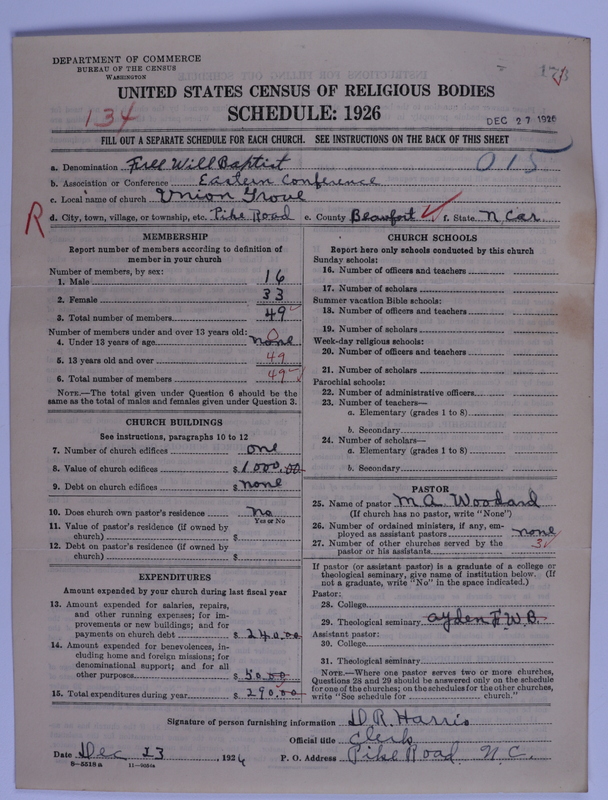 DEPARTMENT OF COMMERCE
BUREAU OF THE CENSUS
WASHINGTON
UNITED STATES CENSUS OF RELIGIOUS BODIES
SCHEDULE: 1926
134
DEC 27 1926
FILL OUT A SEPARATE SCHEDULE FOR EACH CHURCH. SEE INSTRUCTIONS ON THE BACK OF THIS SHEET
a. Denomination Free Will Baptist 015
b. Association or Conference Eastern Conference
c. Local name of church Union Grove
R d. City, town, village, or township, etc. Pike Road e. County Beaufort f. State N. Car.
MEMBERSHIP
Report number of members according to definition of
member in your church
Number of members, by sex:
1. Male 16
2. Female 33
3. Total number of members 49
Number of members under and over 13 years old: 0
4. Under 13 years of age none
5. 13 years old and over 49
6. Total number of members 49
NOTE.—The total given under Question 6 should be
same as the total of males and females given under Question 3.
CHURCH BUILDINGS
See instructions, paragraphs 10 to 12
7. Number of church edifices one
8. Value of church edifices $ 1000.00
9. Debt on church edifices $ none
10. Does church own pastor's residence No
Yes or No
11. Value of pastor's residence (if owned by
church) $
12. Debt on pastor's residence (if owned by
church) $
EXPENDITURES
Amount expended by your church during last fiscal year
13. Amount expended for salaries, repairs,
and other running expenses; for im-
provements or new buildings; and for
payments on church debt $ 240.00
14. Amount expended for benevolences, in-
cluding home and foreign missions; for
denominational support; and for all
other purposes $ 50.00
15. Total expenditures during year $ 290.00
CHURCH SCHOOLS
Report here only schools conducted by this church
Sunday schools:
16. Number of officers and teachers
17. Number of scholars
Summer vacation Bible schools:
18. Number of officers and teachers
19. Number of scholars
Week-day religious schools:
20. Number of officers and teachers
21. Number of scholars
Parochial schools:
22. Number of administrative officers
23. Number of teachers—
a. Elementary (grades 1 to 8)
b. Secondary
24. Number of scholars—
a. Elementary (grades 1 to 8)
b. Secondary
PASTOR
25. Name of pastor M. A. Woodard
(If church has no pastor, write "None")
26. Number of ordained ministers, if any, em-
ployed as assistant pastors none
27. Number of other churches served by the
pastor or his assistants 3
If pastor (or assistant pastor) is a graduate of a college or
theological seminary, give name of institution below. (If
not a graduate, write "No" in the space indicated.)
Pastor:
28. College
29. Theological seminary Ayden F. W. B.
Assistant pastor:
30. College
31. Theological seminary
NOTE.—Where one pastor serves two or more churches,
Questions 28 and 29 should be answered only on the schedule
for one of the churches; on the schedules for the other churches,
write "See schedule for church."
Signature of person furnishing information D. R. Harris
Official title Clerk
Date Dec 23, 1926 P. O. Address Pike Road N. C.
8-5518a